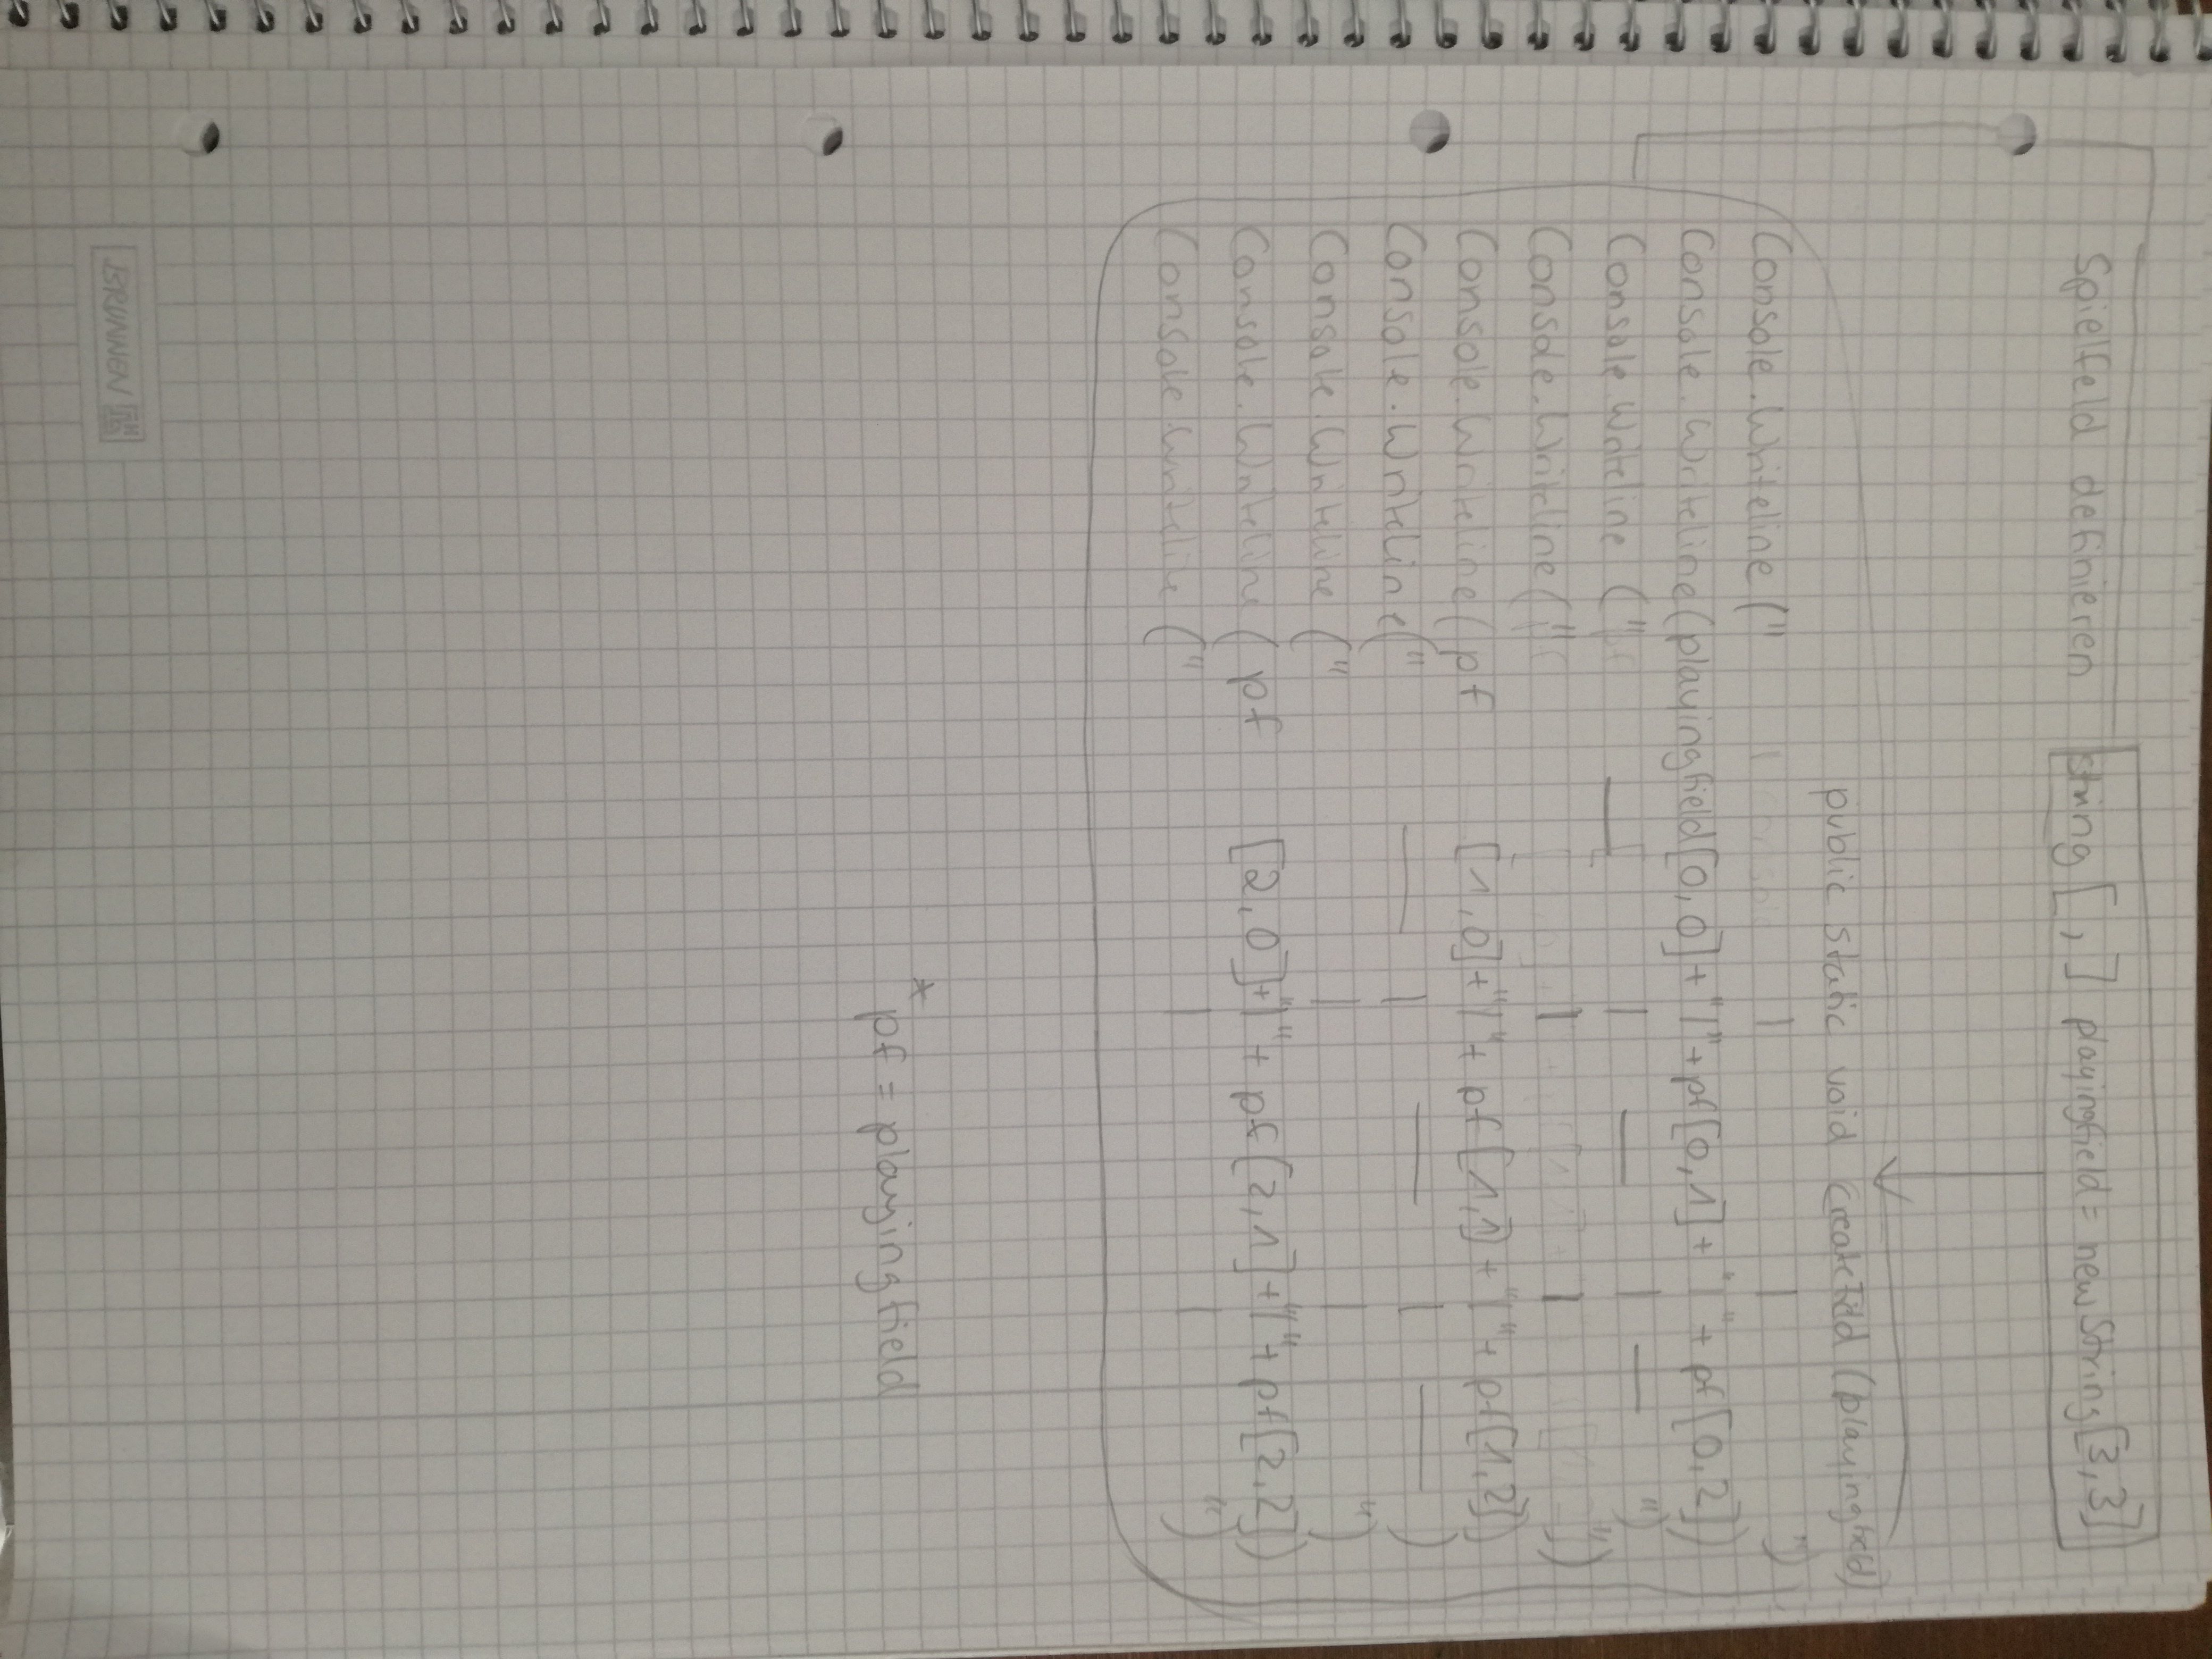 Spielfeld definieren string [ , ] playingfield = new String [3,3]
public static void CreateField (playingfield)
Console.Writeline (" | | ")
Console.Writeline (playingfield [0,0] + "|" + pf [0,1] + "|" + pf [0,2])
Console.Writeline (" — | — | — ")
Console.Writeline (" | | ")
Console.Writeline ( pf [1,0] + "|" + pf [1,1] + "|" + pf [1,2])
Console.WriteLine (" — | — | — )
Console.Writeline (" | | ")
Console.Writeline ( pf [2,0] + "|" + pf [2,1] + "|" + pf [2,2])
Console.Writeline (" | | ")
* pf = playingfield
BRUNNEN